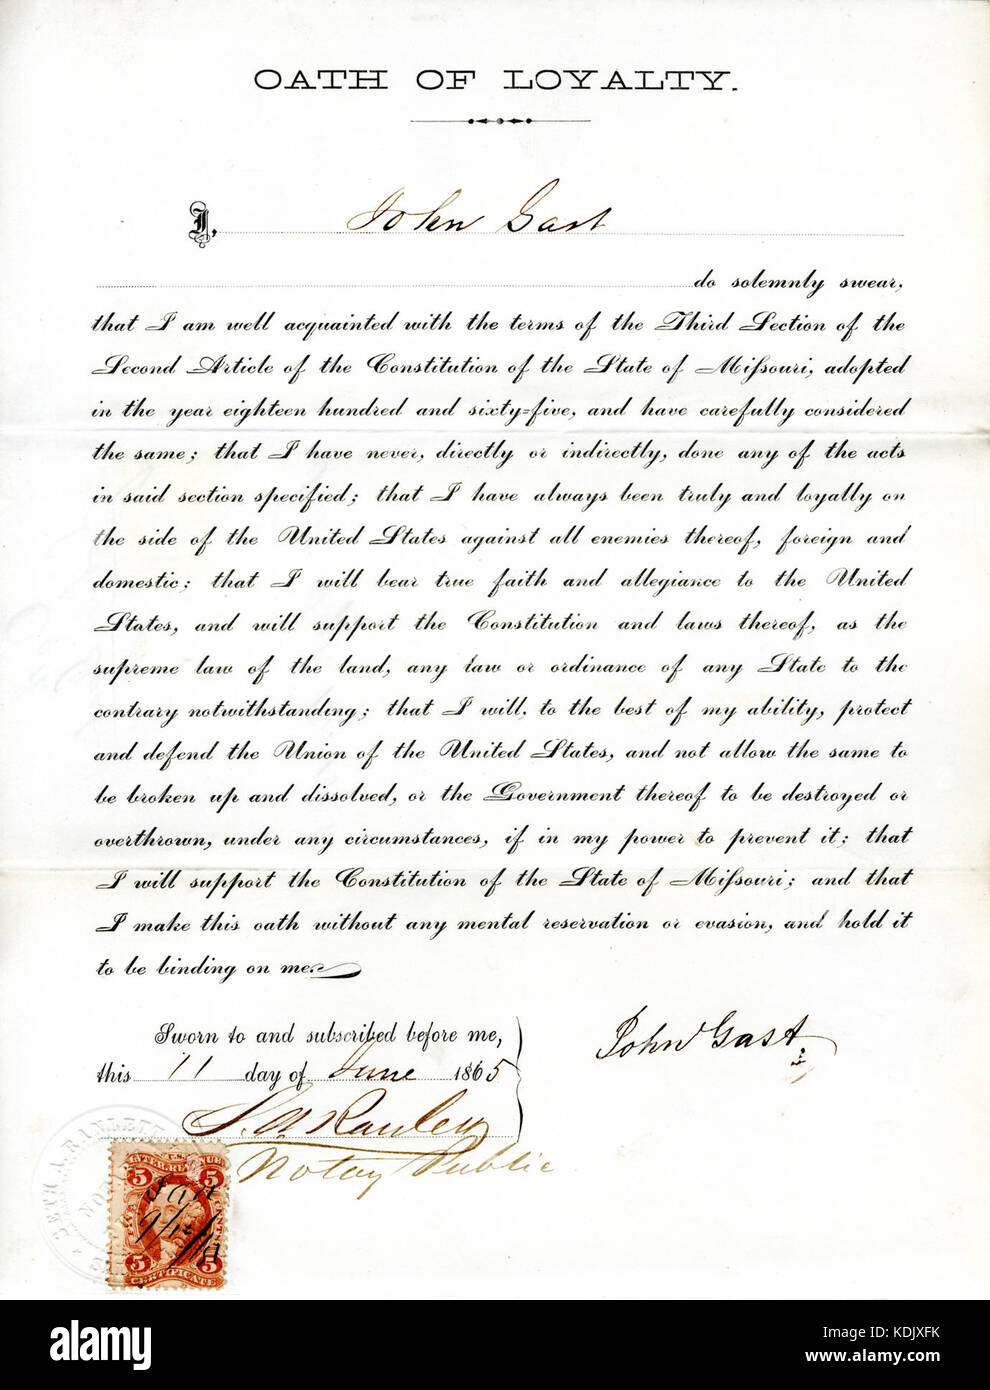 OATH OF LOYALTY.
I, John Gast
do solemnly swear,
that I am well acquainted with the terms of the Third Section of the
Second Article of the Constitution of the State of Mißouri, adopted
in the year eighteen hundred and sixty=five, and have carefully considered
the same; that I have never, directly or indirectly, done any of the acts
in said section specified; that I have always been truly and loyally on
the side of the United States against all enemies thereof, foreign and
domestic; that I will bear true faith and allegiance to the United
States, and will support the Constitution and laws thereof, as the
supreme law of the land, any law or ordinance of any State to the
contrary notwithstanding; that I will, to the best of my ability, protect
and defend the Union of the United States, and not allow the same to
be broken up and dissolved, or the Government thereof to be destroyed or
overthrown, under any circumstances, if in my power to prevent it; that
I will support the Constitution of the State of Mißouri; and that
I make this oath without any mental reservation or evasion, and hold it
to be binding on me.
Sworn to and subscribed before me,
this 11 day of June 1865
John Gast
Notay Public
SETH A. RANLETT
5 5
CENTS
5 5
CERTIFICATE
a alamy stock photo
KDJXFK
www.alamy.com